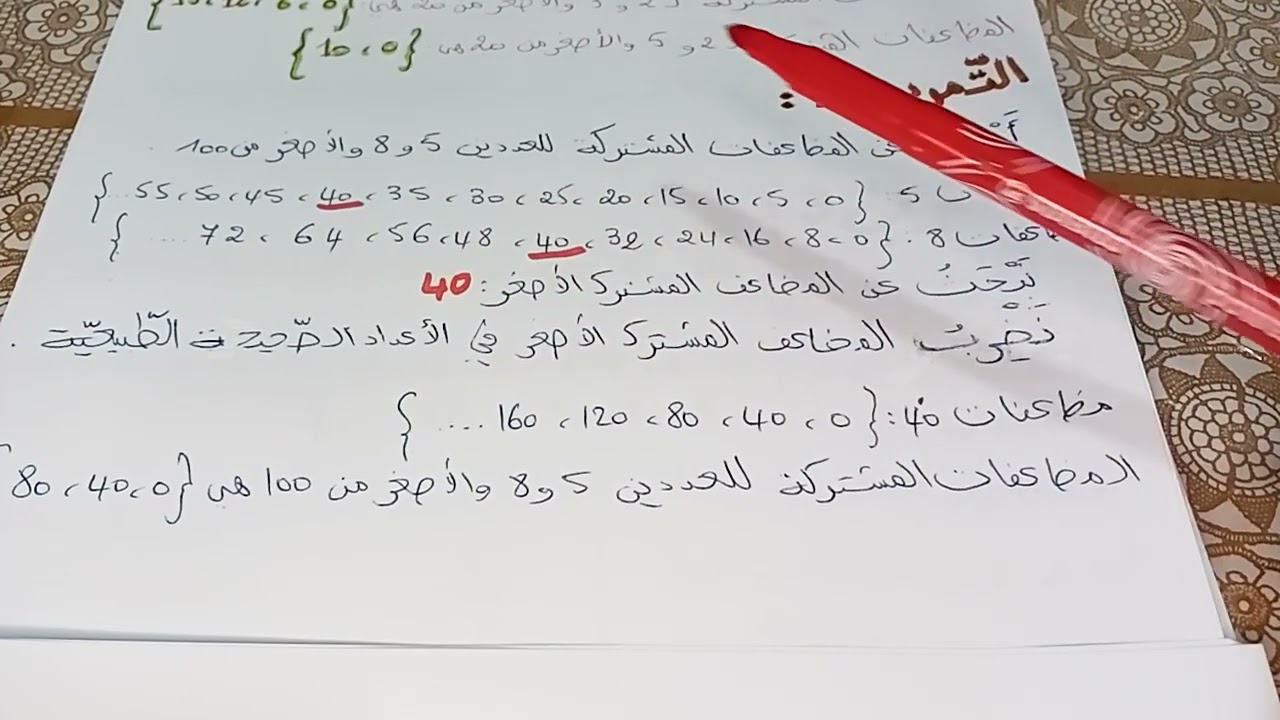 المضاعفات 2 و 5 والأصغر من 20 هي {0، 10}
المضاعفات المشتركة للعددين 5 و 8 والأصغر من 100.
5 {0، 5، 10، 15، 20، 25، 30، 35، 40، 45، 50، 55 ...}
8. {0، 8، 16، 24، 32، 40، 48، 56، 64، 72 ....}
نَبْحَثُ عن المضاعف المشترك الأصغر: 40
نَضْرِبُ المضاعف المشترك الأصغر في الأعداد الصّحيحة الطّبيعيّة.
مضاعفات 40: {0، 40، 80، 120، 160 ....}
المضاعفات المشتركة للعددين 5 و 8 والأصغر من 100 هي {0، 40، 80